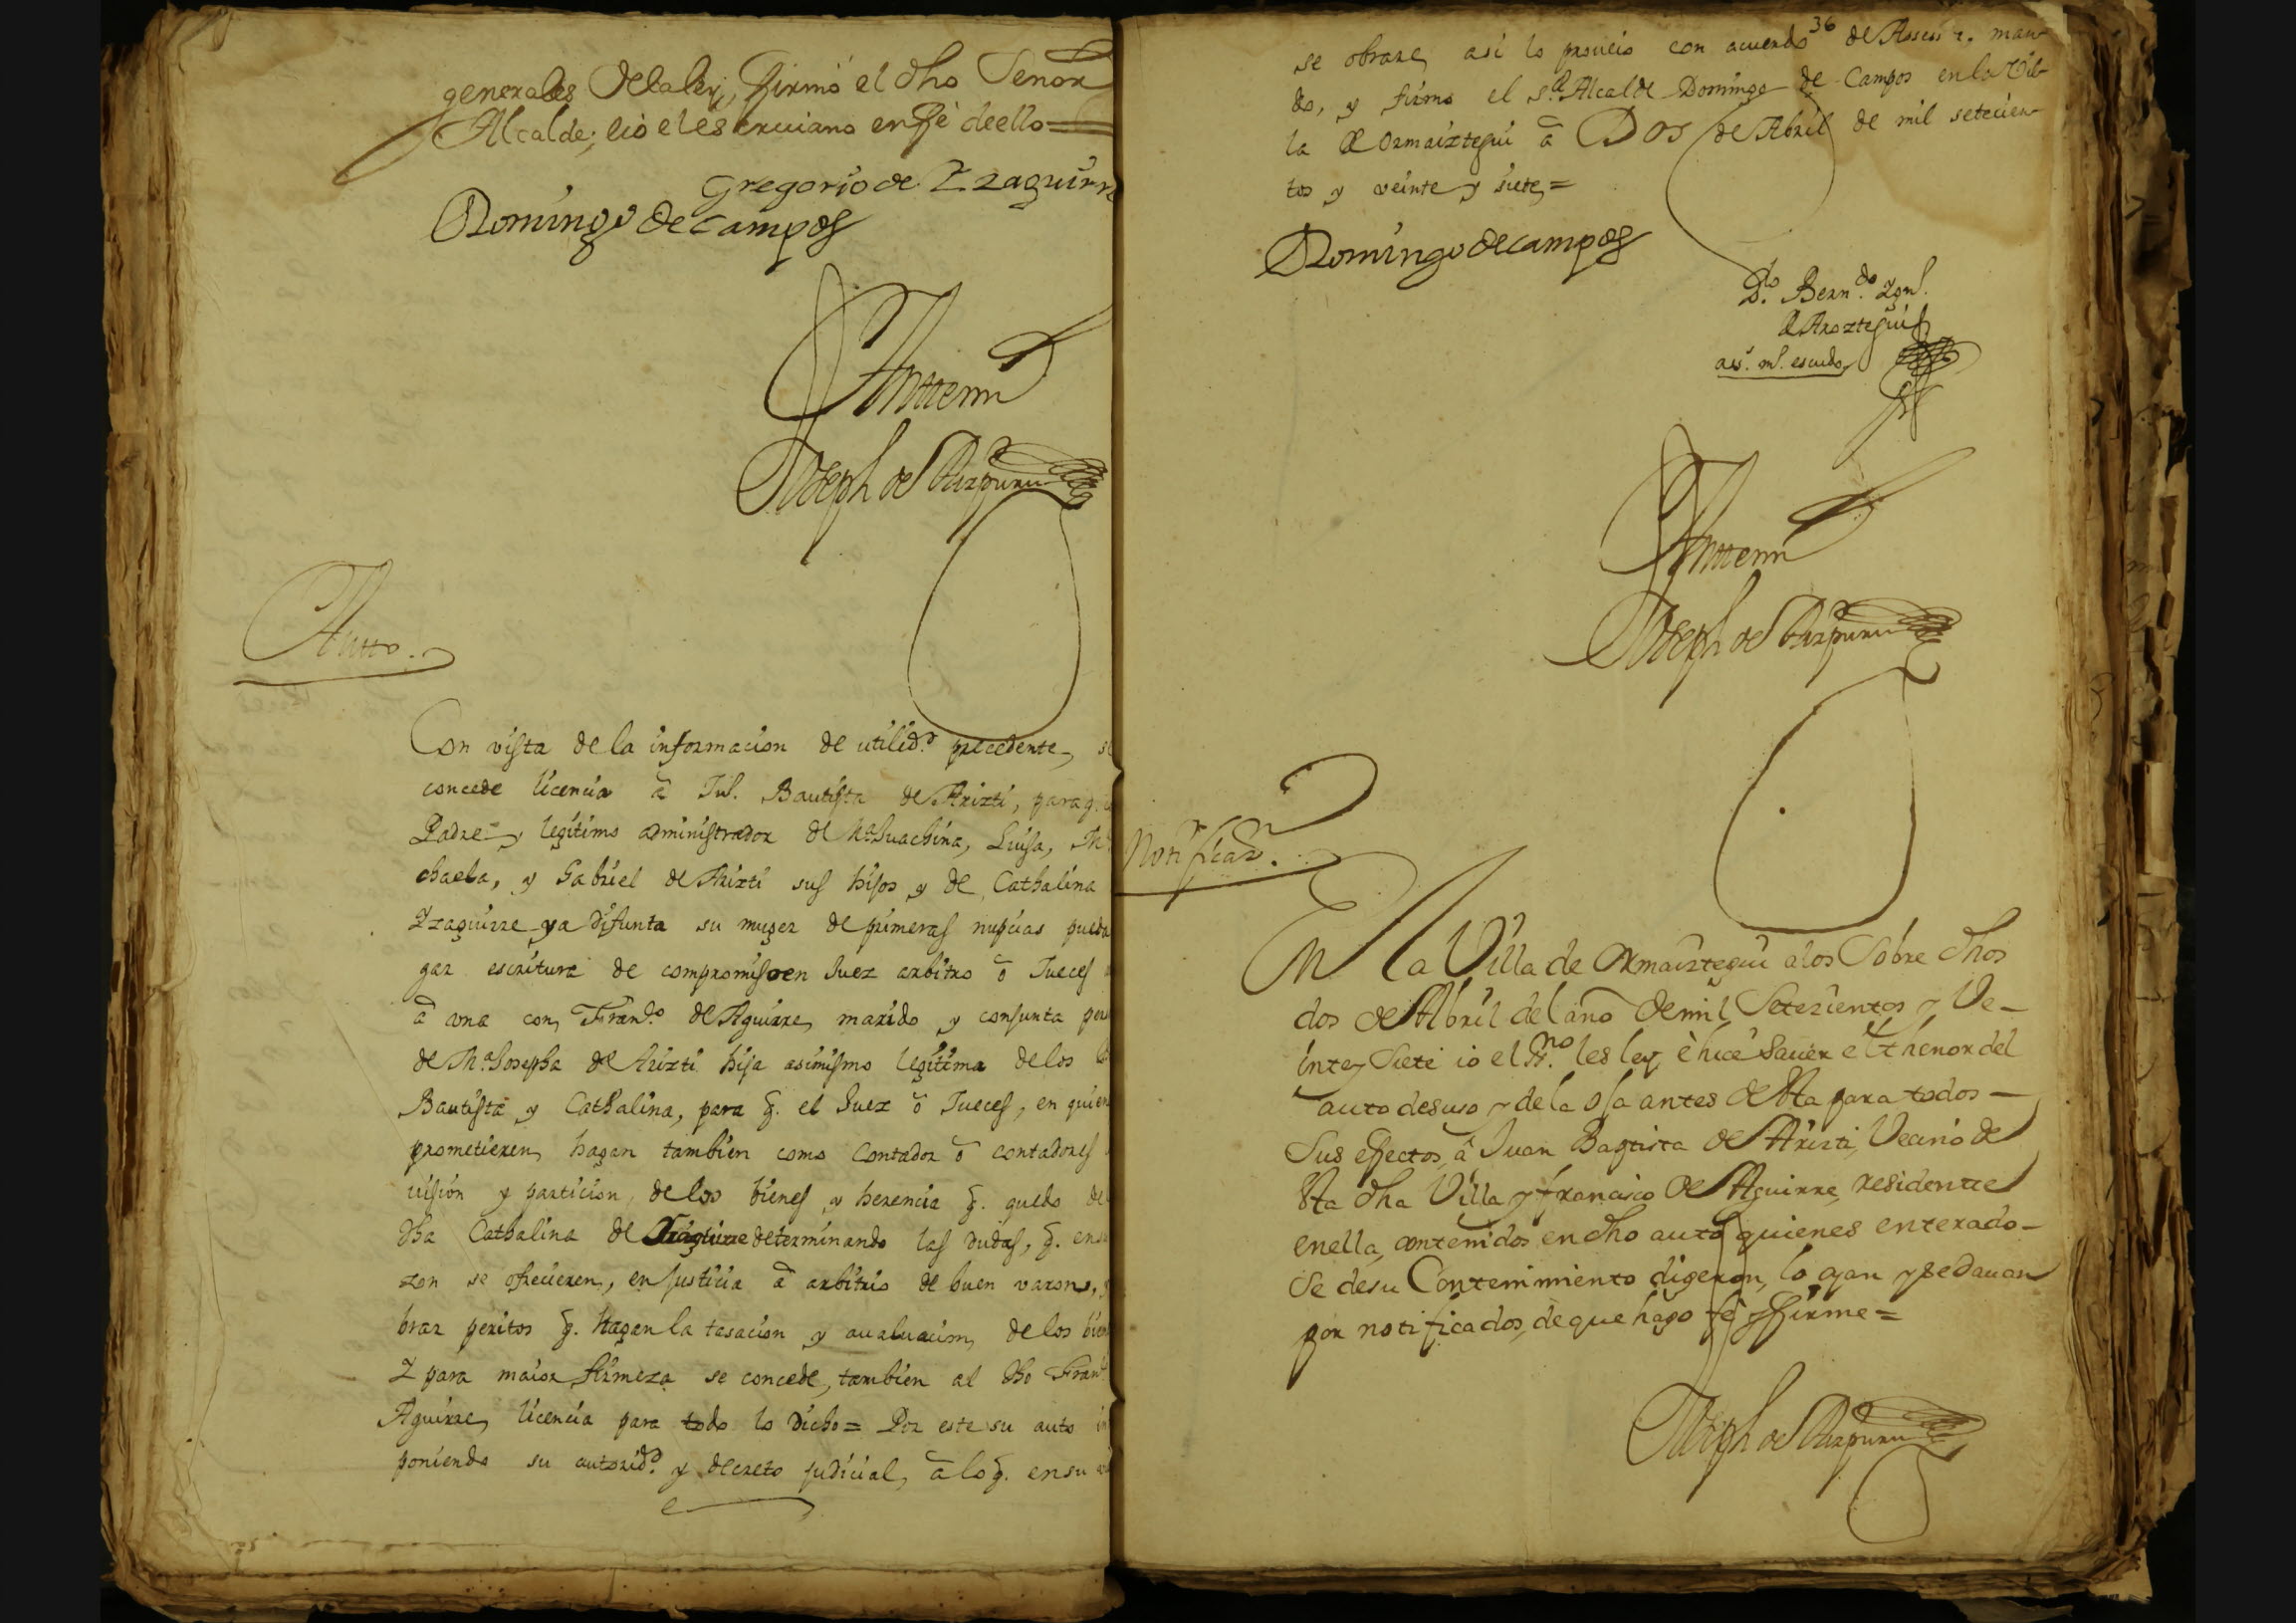 generales Dela ley, firmó el dho Señor
Alcalde; eió el es cruiano en feè deello=
Gregorio de Yzaguirre
Domingo de Campos
Antemi
Joseph de Aizpuru
Autto.
Con vista de la informacion de utilid.d precedente, se
concede licencia a Juº. Bautista de Arizti, para q.
Padre y legitimo administrador de Mª Juachina, Luisa, Mi
chaela, y Gabriel de Arizti sus hijos y de Cathalina
Yzaguirre ya Difunta su muger de primeras nupcias pueda
gar escritura de compromiso en Juez arbitro ô Jueces
â una con Fran.co de Aguirre, marido y conjunta per
de Mª Josepha de Arizti hija asimismo legitima de los
Bautista y Cathalina, para q. el Juez ô Jueces, en quien
prometieren hagan tambien como Contador ô contadores
uision y particion de los bienes y herencia q. quedo de
dha Cathalina de Yzaguirre determinando las dudas, q. en
zon se ofrecieren, en Justicia â arbitrio de buen varon,
brar peritos q. Hagan la tasacion y aualuacion de los bien
Y para maior firmeza se concede, tambien al dho Fran.co
Aguirre, licencia para todo lo Dicho= Por este su auto in
poniendo su autorid.d y decreto judicial, â lo q. en su
36
se obrare, asi lo proueió con acuerdo de Assesor. man
do, y firmo el s.r Alcalde Domingo de Campos en la Vi
la de Ormaiztegui â Dos de Abril de mil setecien
tos y veinte y siete,=
Domingo de Campos
Bern.do
de Aroztegui
Antemi
Joseph de Aizpuru
Notificaon.
En la Villa de Ormaiztegui a los Sobre dhos
dos de Abril del año de mil Setezientos y Ve-
inte y Siete io el ss.no les ley, è hice Sauer el thenor del
auto desuso y de la oja antes de Sta para todos-
Sus effectos, â Juan Baptista de Arizti, Vecino de
Sta dha Villa y francisco de Aguirre, residente
enella, contenidos en dho auto, quienes enterado-
Se desu Contenimiento digeron, lo oyan y Sedauan
por notificados, de que hago fè y firme=
Joseph de Aizpuru